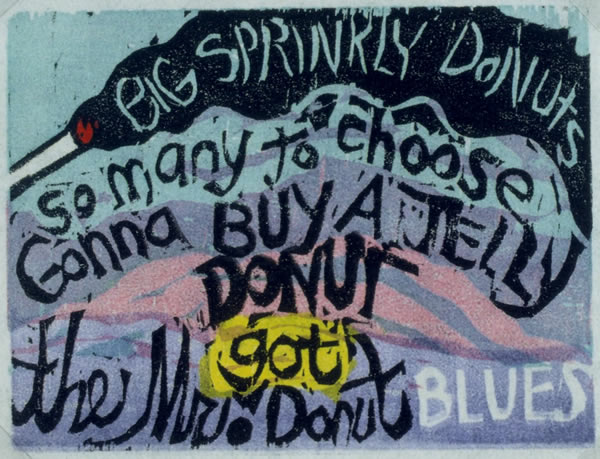 BIG SPRINKLY DONUTS
so many to choose
Gonna BUY A JELLY
DONUT
got
the Mr. Donut BLUES